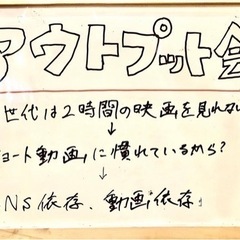 アウトプット会
世代は2時間の映画を見れない
↓
ョート動画に慣れているから?
↓
NS依存、動画依存」